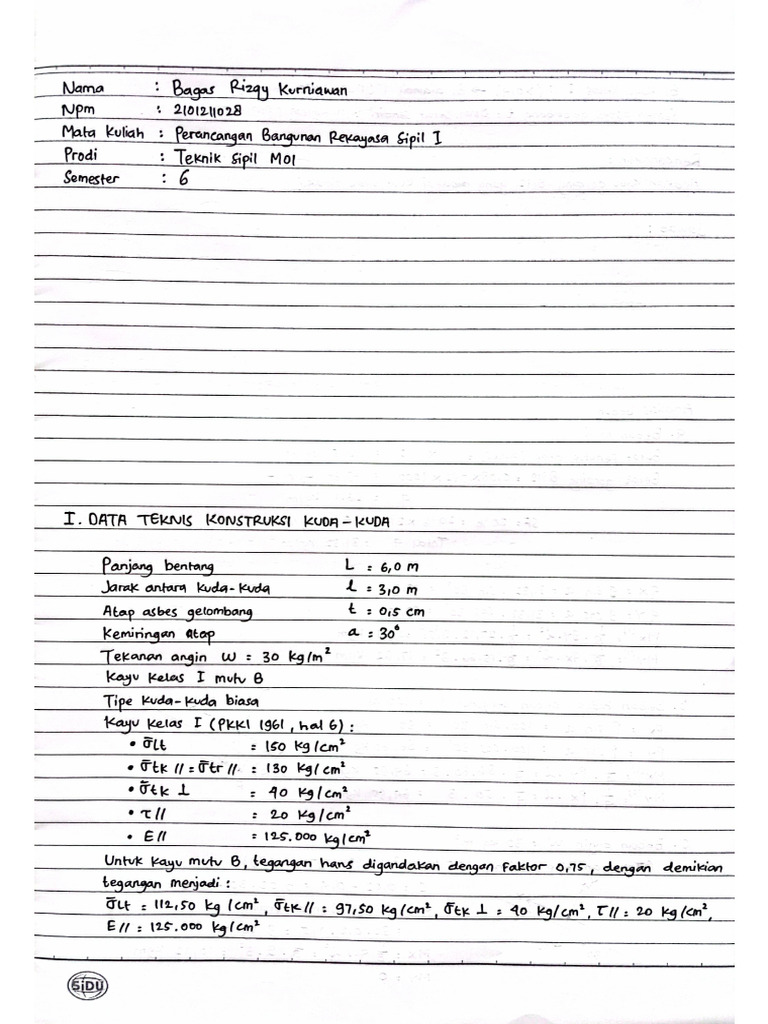 Nama : Bagas Rizqy Kurniawan
Npm : 2101211028
Mata Kuliah : Perancangan Bangunan Rekayasa Sipil I
Prodi : Teknik Sipil M01
Semester : 6
I. DATA TEKNIS KONSTRUKSI KUDA-KUDA
Panjang bentang L = 6,0 m
Jarak antara kuda-kuda l = 3,0 m
Atap asbes gelombang t = 0,5 cm
Kemiringan atap a = 30°
Tekanan angin w = 30 kg/m²
Kayu kelas I mutu B
Tipe kuda-kuda biasa
Kayu kelas I (PKKI 1961, hal 6) :
• σ̅lt = 150 kg/cm²
• σ̅tk // = σ̅tr // = 130 kg/cm²
• σ̅tk ⊥ = 40 kg/cm²
• τ// = 20 kg/cm²
• E// = 125.000 kg/cm²
Untuk kayu mutu B, tegangan hans digandakan dengan faktor 0,75, dengan demikian
tegangan menjadi :
σ̅lt = 112,50 kg/cm², σ̅tk// = 97,50 kg/cm², σ̅tk ⊥ = 40 kg/cm², τ// = 20 kg/cm²,
E// = 125.000 kg/cm²
SiDU